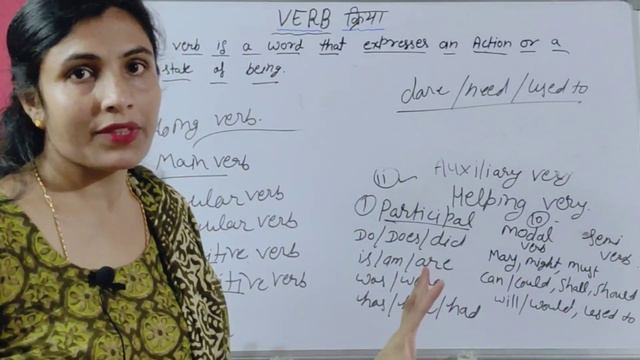 VERB क्रिया
verb is a word that expresses an Action or a
state of being.
dare / need / used to
verb.
Main verb
verb
verb
verb
verb
(ii) Auxiliary very
Helping very.
(1) Participal
Do / Does / did
is / am / are
was /
has / / had
(10)
modal
verb
May, might, must
can / could, shall, should
will / would, used to
semi
verb.